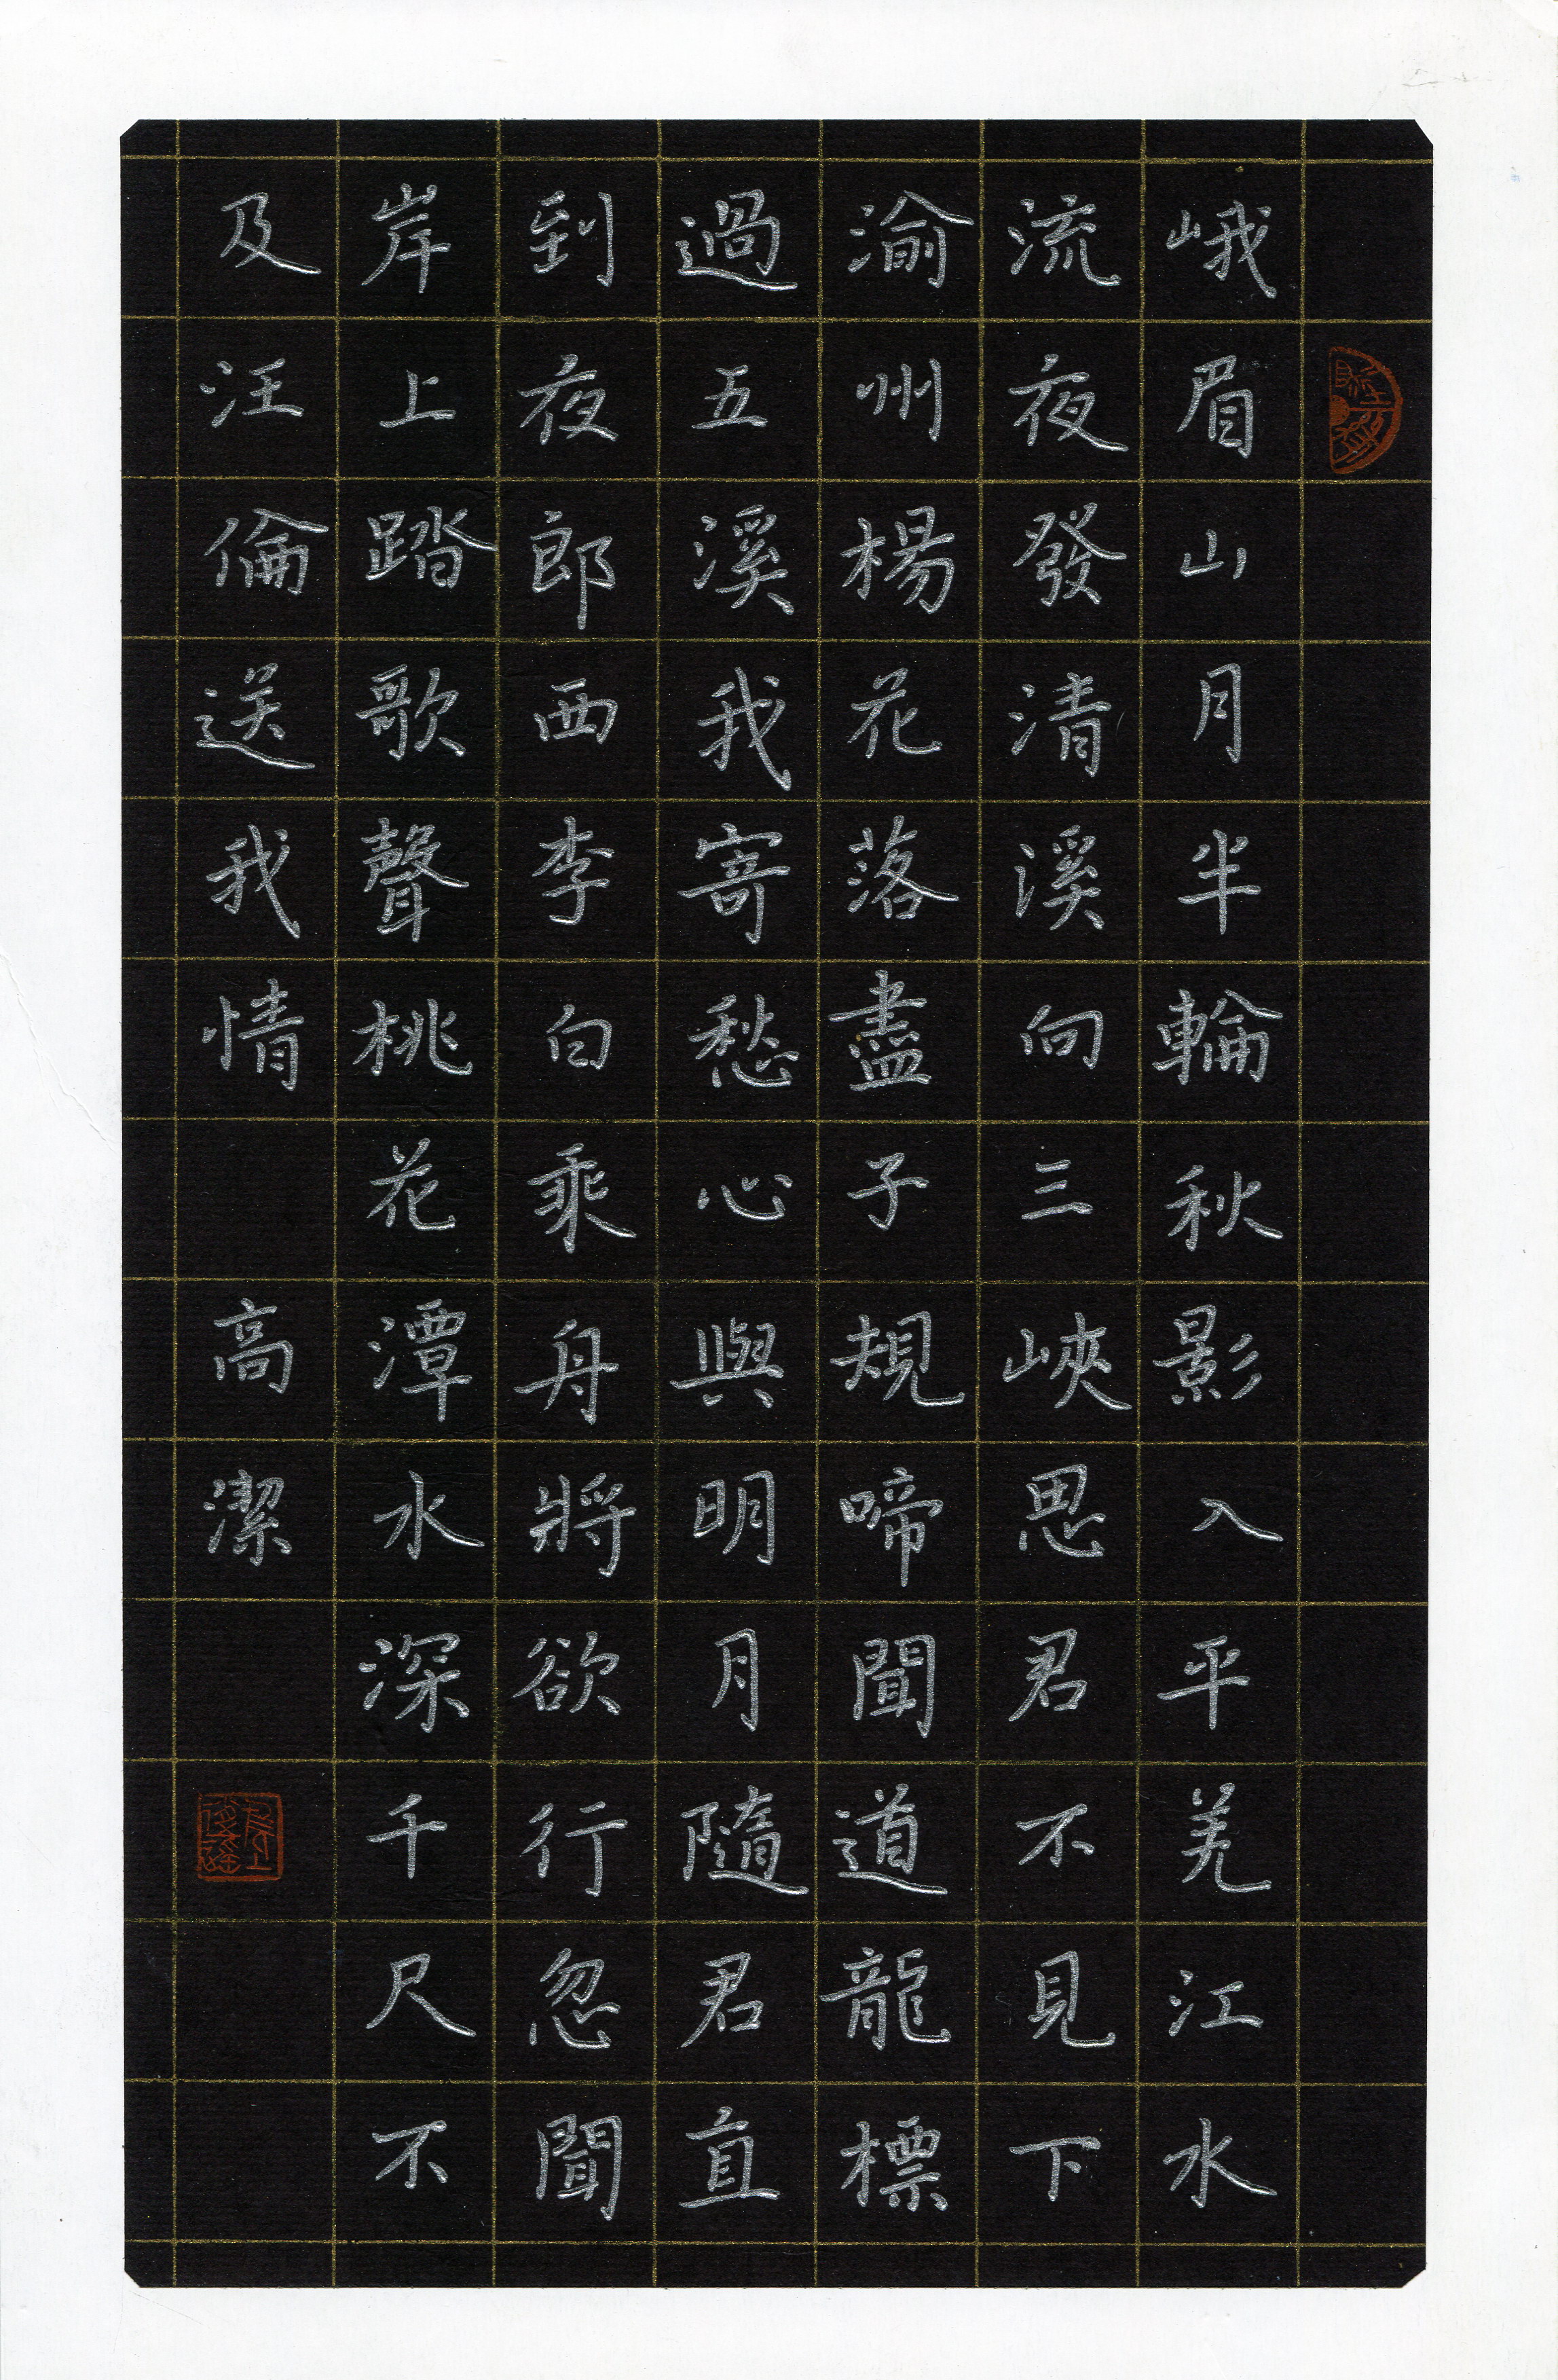 峨眉山月半輪秋影入平羌江水
流夜發清溪向三峽思君不見下
渝州楊花落盡子規啼聞道龍標
過五溪我寄愁心與明月隨君直
到夜郎西李白乘舟將欲行忽聞
岸上踏歌聲桃花潭水深千尺不
及汪倫送我情
高潔